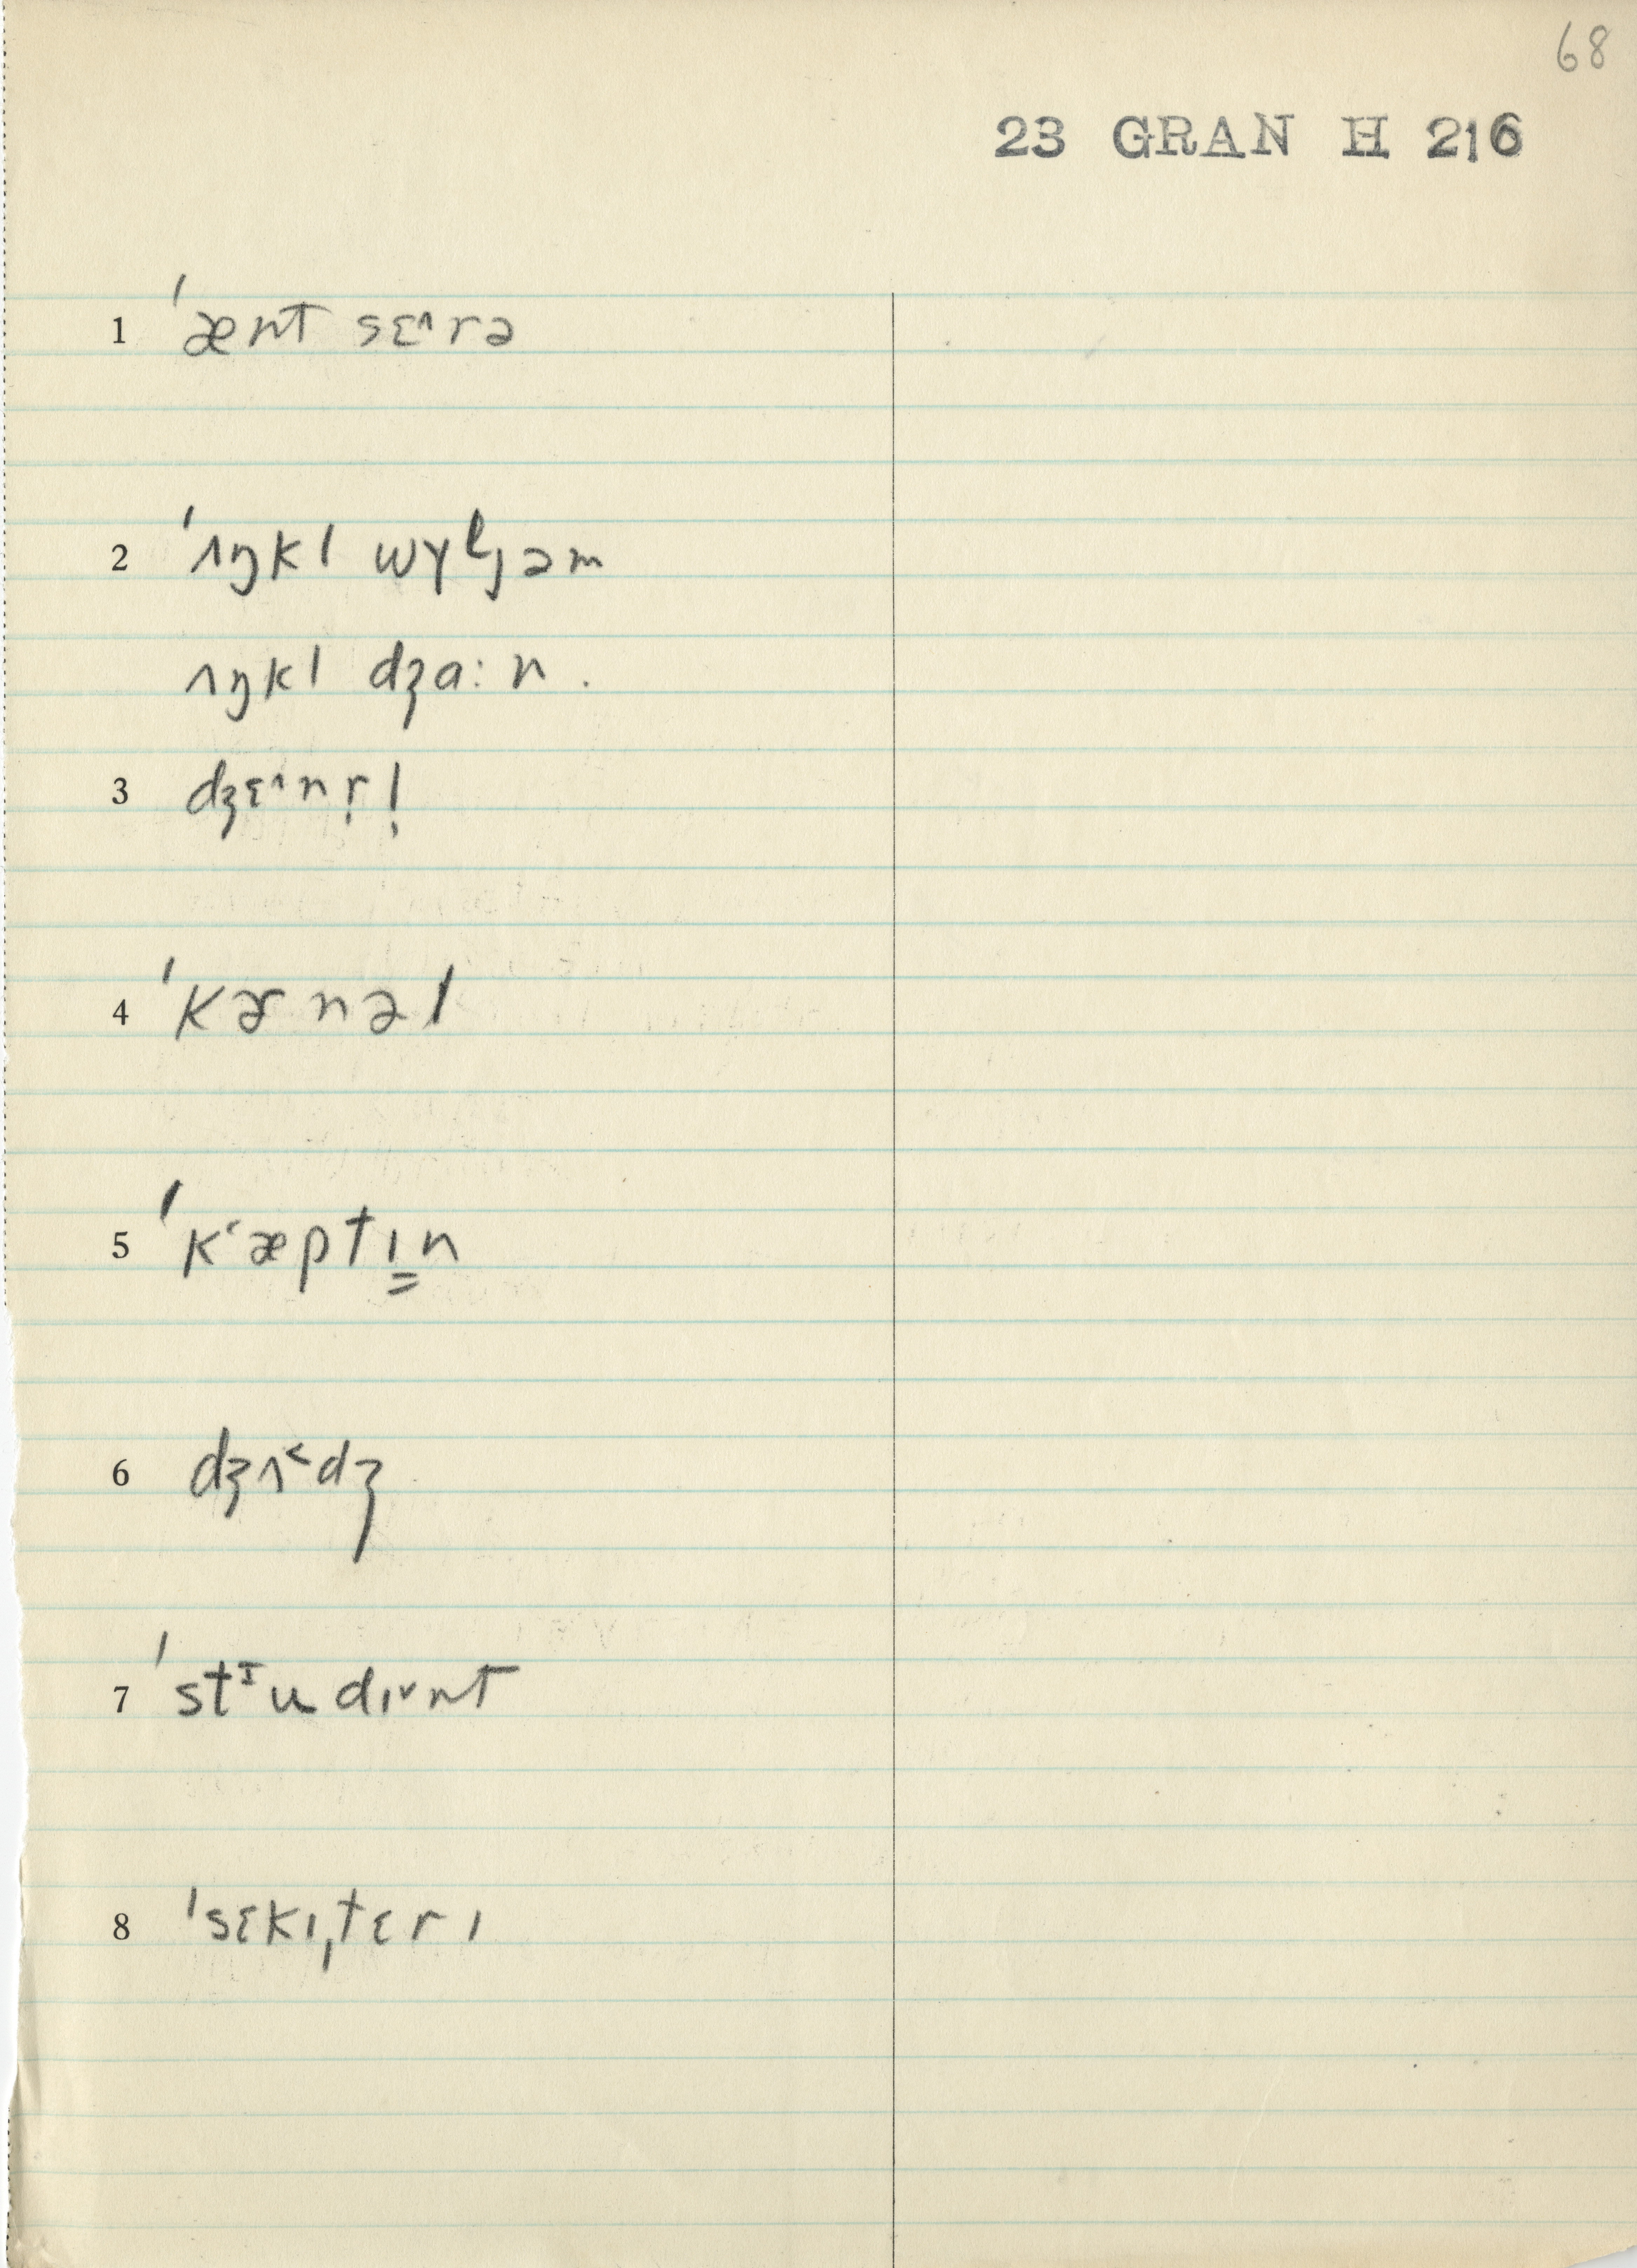 68
23 GRAN H 216
1 ˈænt sɛ^rə
2 ˈʌŋkl wɣɫjəm
ʌŋkl dʒɑ:n.
3 dʒɛ^nr̩l̩
4 ˈkɚnəl
5 ˈkʻæptɪ̳n
6 dʒʌ˂dʒ
7 ˈstᴵudɪ˅nt
8 ˈsɛkɪˌtɛrɪ